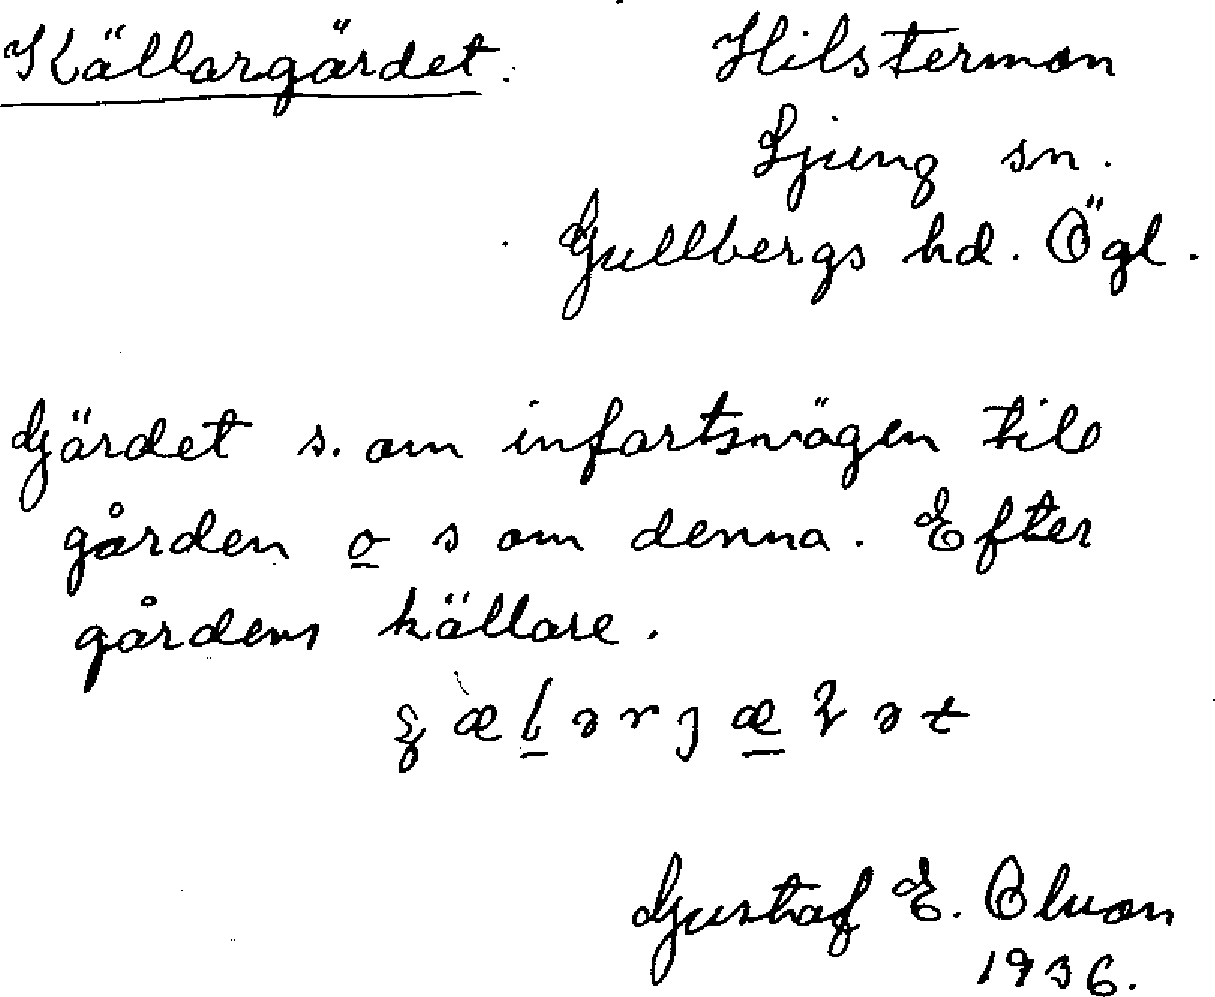 Källargärdet. Hilsterman
Ljung sn.
Gullbergs hd. Ögl.
Gärdet s. om infartsvägen till
gården o s om denna. Efter
gårdens källare.
Gustaf E. Olson
1936.